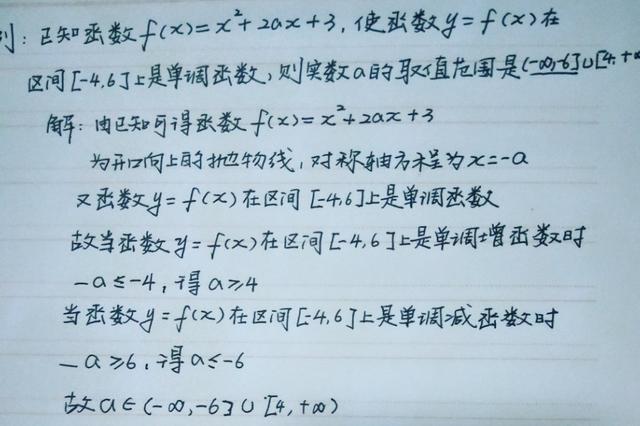 例：已知函数f(x)=x²+2ax+3，使函数y=f(x)在
区间[-4,6]上是单调函数，则实数a的取值范围是(-∞,-6]∪[4,+∞
解：由已知可得函数f(x)=x²+2ax+3
为开口向上的抛物线，对称轴方程为x=-a
又函数y=f(x)在区间[-4,6]上是单调函数
故当函数y=f(x)在区间[-4,6]上是单调增函数时
-a≤-4，得a≥4
当函数y=f(x)在区间[-4,6]上是单调减函数时
-a≥6，得a≤-6
故a∈(-∞,-6]∪[4,+∞)